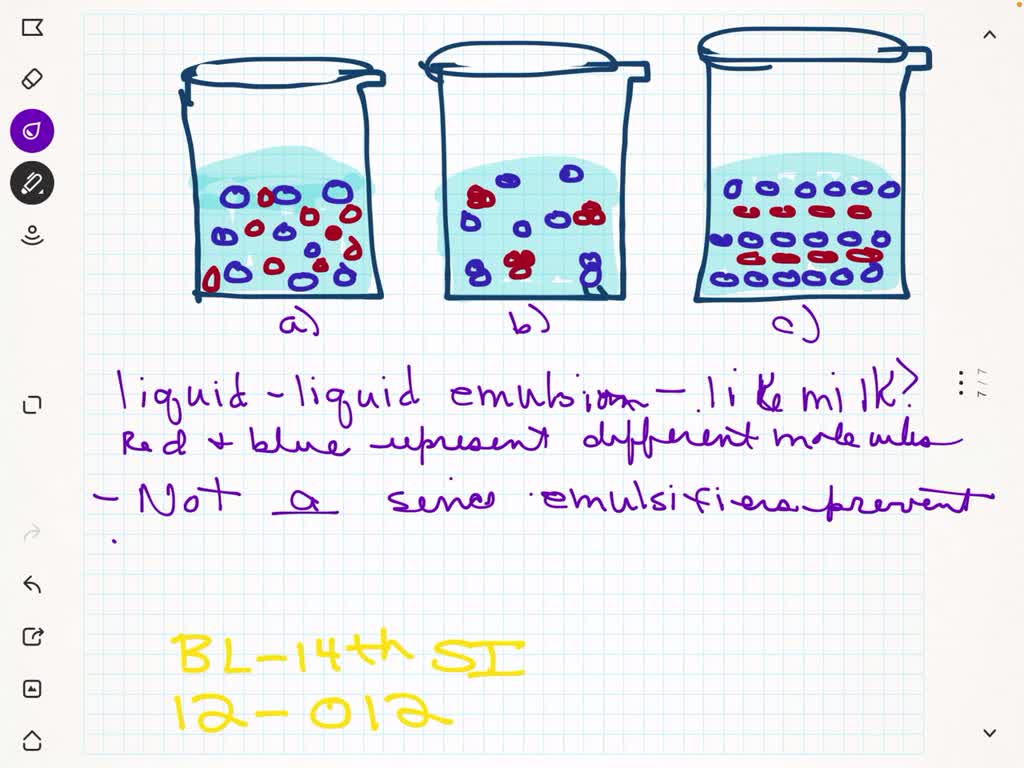 a) b) c)
liquid - liquid emulsion - like milk?
Red + blue represent different molecules
- Not a since emulsifiers prevent
BL-14th SI
12-012
7/7